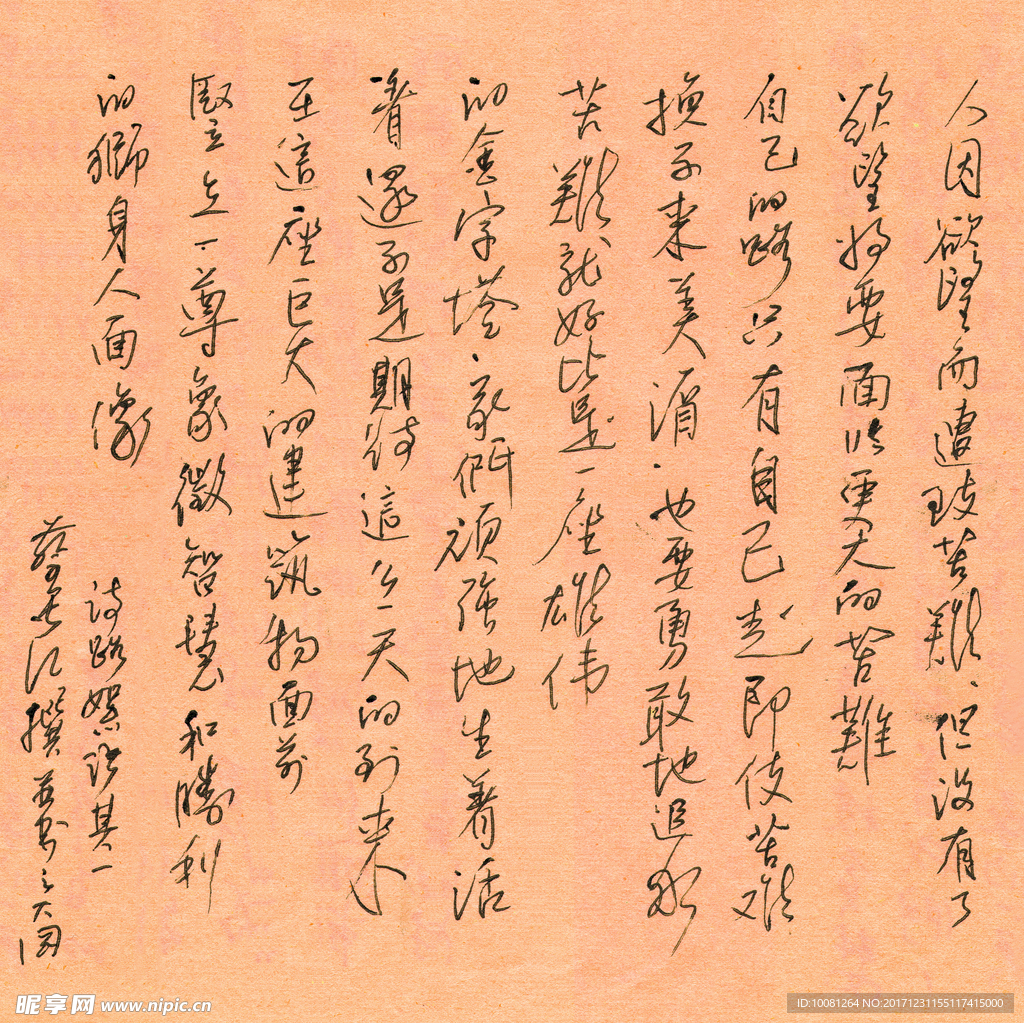 人因慾望而遭致苦難、但没有了
欲望将要面临更大的苦難
自己的路只有自己走即使苦难
换不来美、也要勇敢地追求
苦難就好比是一座雄伟
的金字塔、我們顽强地生着活
着還不是期待這么一天的到来
在這座巨大的建筑物面前
竪立一尊象徵智慧和勝利
的獅身人面像
诗路絮语其一
蔡江撰並書
昵享网 www.nipic.cn
ID:10081264 NO:20171231155117415000